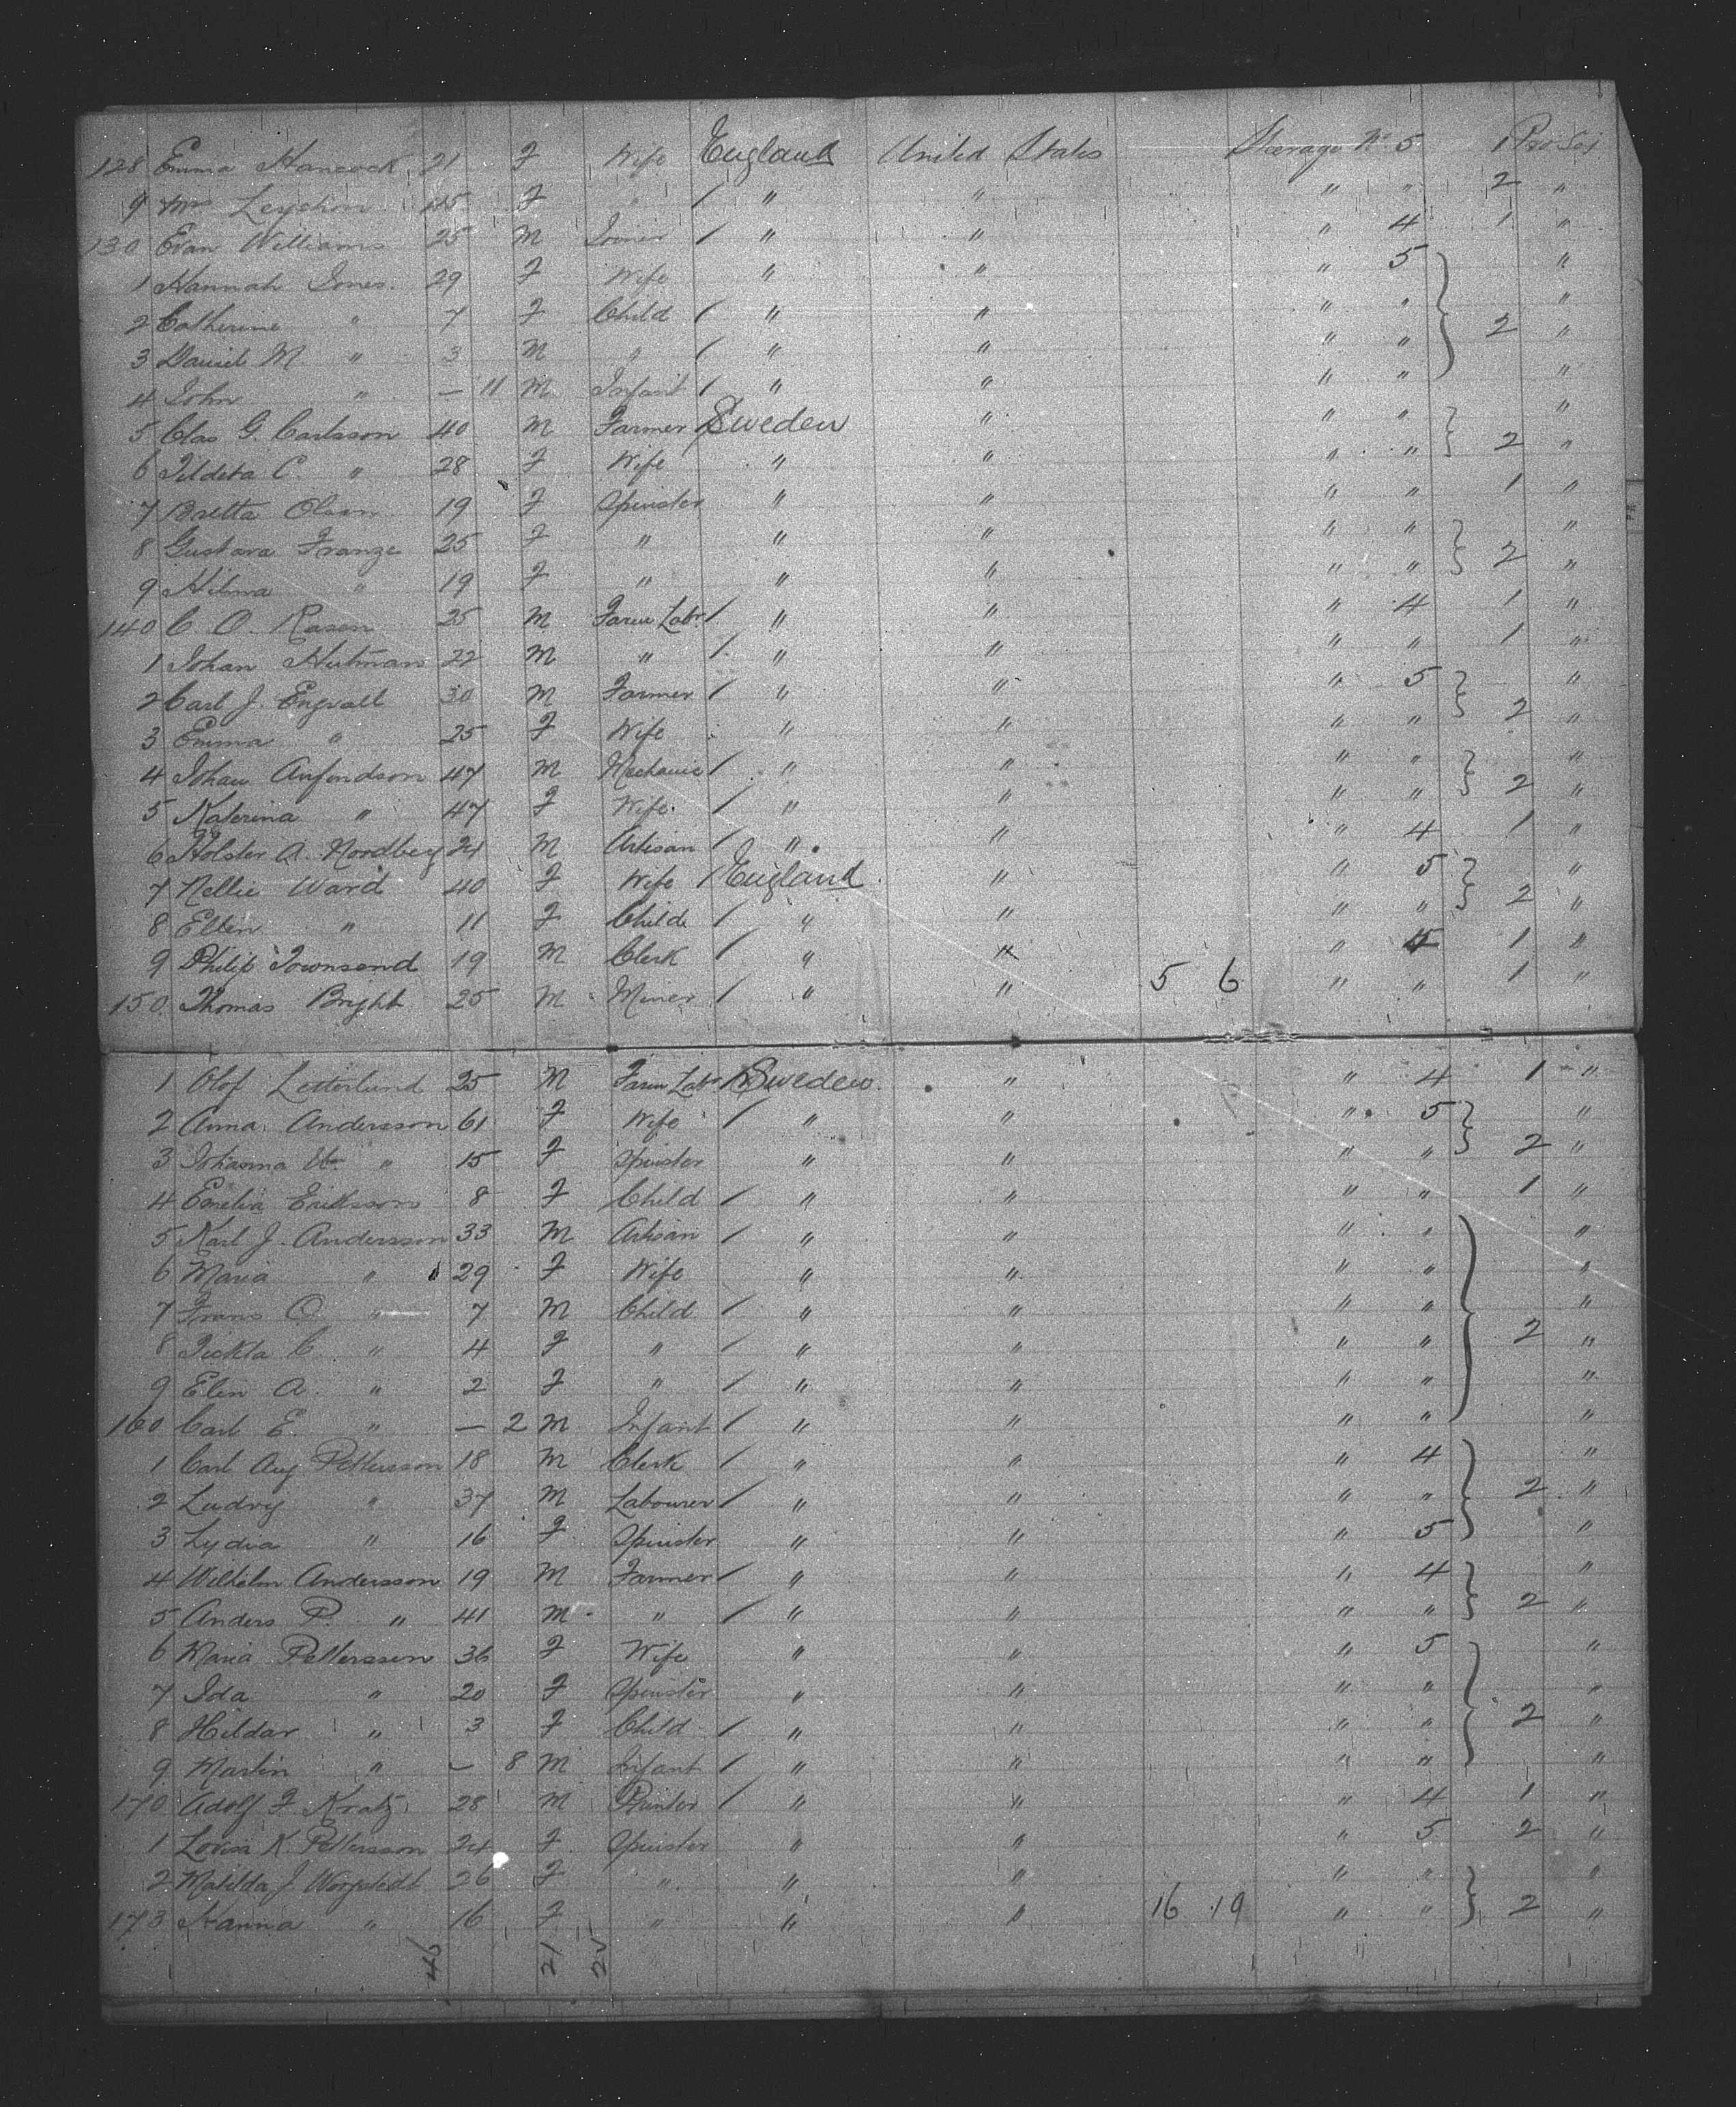 128 Emma Hancock 21 F Wife England United States Steerage No 5 1 Pro Soj
9 Mrs Leyshon 45 F " / " " " " 2 "
130 Evan Williams 25 M Joiner / " " " 4 1 "
1 Hannah Jones 29 F Wife " " " 5 "
2 Catherine " 7 F Child / " " " " 2 "
3 Daniel M. " 3 M " / " " " " "
4 John " — 11 M Infant / " " " " "
5 Clas G. Carlsson 40 M Farmer / Sweden " " " "
6 Tildeta C. " 28 F Wife " " " " 2 "
7 Bretta Olsen 19 F Spinster " " " " 1 "
8 Gustava Franze 25 F " " " " " "
9 Hilma " 19 F " " " " " 2 "
140 C. O. Rasen 25 M Farm Labr / " " " 4 1 "
1 Johan Hutman 22 M " / " " " " 1 "
2 Carl J. Engvall 30 M Farmer / " " " 5 "
3 Emma " 25 F Wife " " " " 2 "
4 Johan Anfindson 47 M Mechanic / " " " " "
5 Katerina " 47 F Wife / " " " " 2 "
6 Holster A. Nordberg 21 M Artisan / " " " 4 1 "
7 Nellie Ward 40 F Wife / England " " 5 "
8 Ellen " 11 F Child / " " " " 2 "
9 Philip Townsend 19 M Clerk / " " " 4 1 "
150 Thomas Bright 25 M Miner / " " 5 6 " " 1 "
1 Olof Letterlund 25 M Farm Labr / Sweden " " 4 1 "
2 Anna Andersson 61 F Wife / " " " 5 "
3 Johanna " 15 F Spinster " " " " 2 "
4 Emelia Eriksson 8 F Child / " " " " 1 "
5 Karl J. Andersson 33 M Artisan / " " " " "
6 Maria " 29 F Wife " " " " "
7 Frans O. " 7 M Child / " " " " "
8 Tickla C. " 4 F " / " " " " 2 "
9 Elin A. " 2 F " / " " " " "
160 Carl E. " — 2 M Infant / " " " " "
1 Carl Aug Pettersson 18 M Clerk / " " " 4 "
2 Ludvig " 37 M Labourer / " " " " 2 "
3 Lydia " 16 F Spinster " " " 5 "
4 Wilhelm Andersson 19 M Farmer / " " " 4 "
5 Anders P. " 41 M " / " " " " 2 "
6 Maria Pettersson 36 F Wife " " " 5 "
7 Ida " 20 F Spinster " " " " "
8 Hildar " 3 F Child / " " " " 2 "
9 Martin " — 8 M Infant / " " " " "
170 Adolf F Kratz 28 M Printer / " " " 4 1 "
1 Lovisa K Pettersson 24 F Spinster " " " 5 2 "
2 Matilda J. 26 F " " " " " "
173 Hanna " 16 F " " " 16 19 " " 2 "
45 21 25